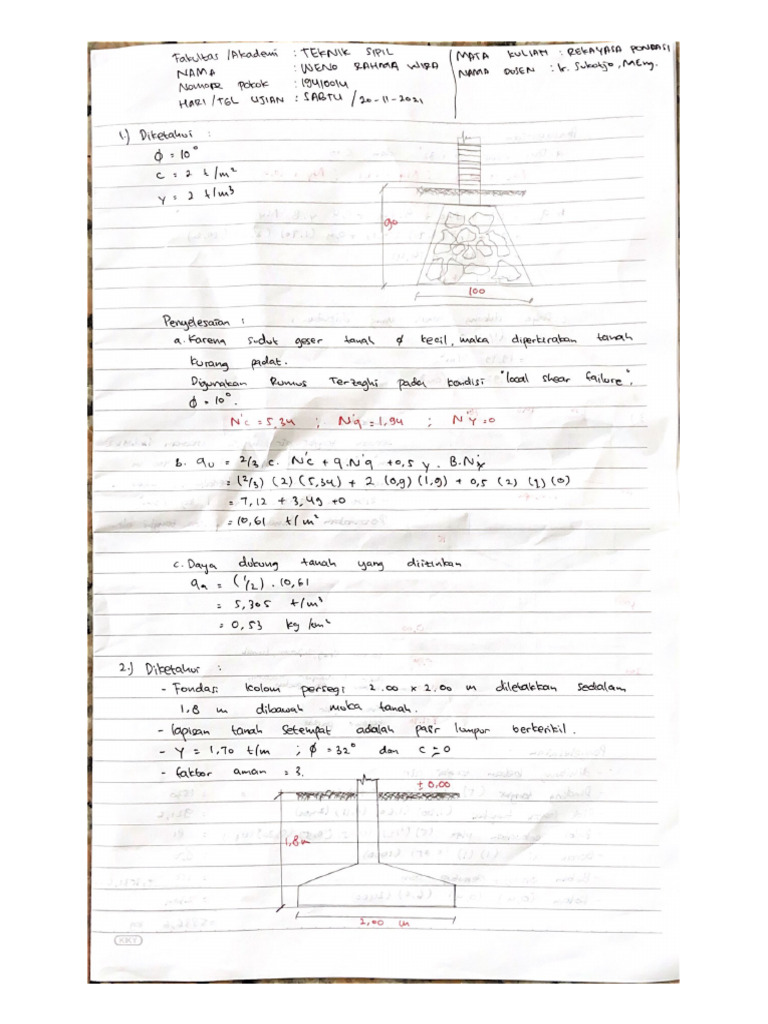 Fakultas /Akademi : TEKNIK SIPIL
NAMA : WENO RAHMA WIRA
Nomor Pokok : 19410014
HARI/TGL UJIAN : SABTU / 20-11-2021
MATA KULIAH : REKAYASA PONDASI
NAMA DOSEN : Ir. Sukotjo, MEng.
1.) Diketahui :
ϕ = 10°
c = 2 t/m²
γ = 2 t/m³
90
100
Penyelesaian :
a. Karena sudut geser tanah ϕ kecil, maka diperkirakan tanah
kurang padat.
Digunakan Rumus Terzaghi pada kondisi "local shear failure".
ϕ = 10°.
N'c = 5,34 ; N'q = 1,94 ; N'γ = 0
b. qu = 2/3 c. N'c + q.N'q + 0,5 γ. B.N'γ
= (2/3) (2) (5,34) + 2 (0,9) (1,9) + 0,5 (2) (1) (0)
= 7,12 + 3,49 + 0
= 10,61 t/m²
c. Daya dukung tanah yang diitinkan
qa = (1/2) . 10,61
= 5,305 t/m³
= 0,53 kg/cm²
2.) Diketahui :
- Fondasi kolom persegi 2.00 x 2,00 m diletakkan sedalam
1,8 m dibawah muka tanah.
- lapisan tanah setempat adalah pasir lumpur berkerikil.
- γ = 1,70 t/m ; ϕ = 32° dan c = 0
- faktor aman = 3.
± 0,00
1,8 m
2,00 m
KKY